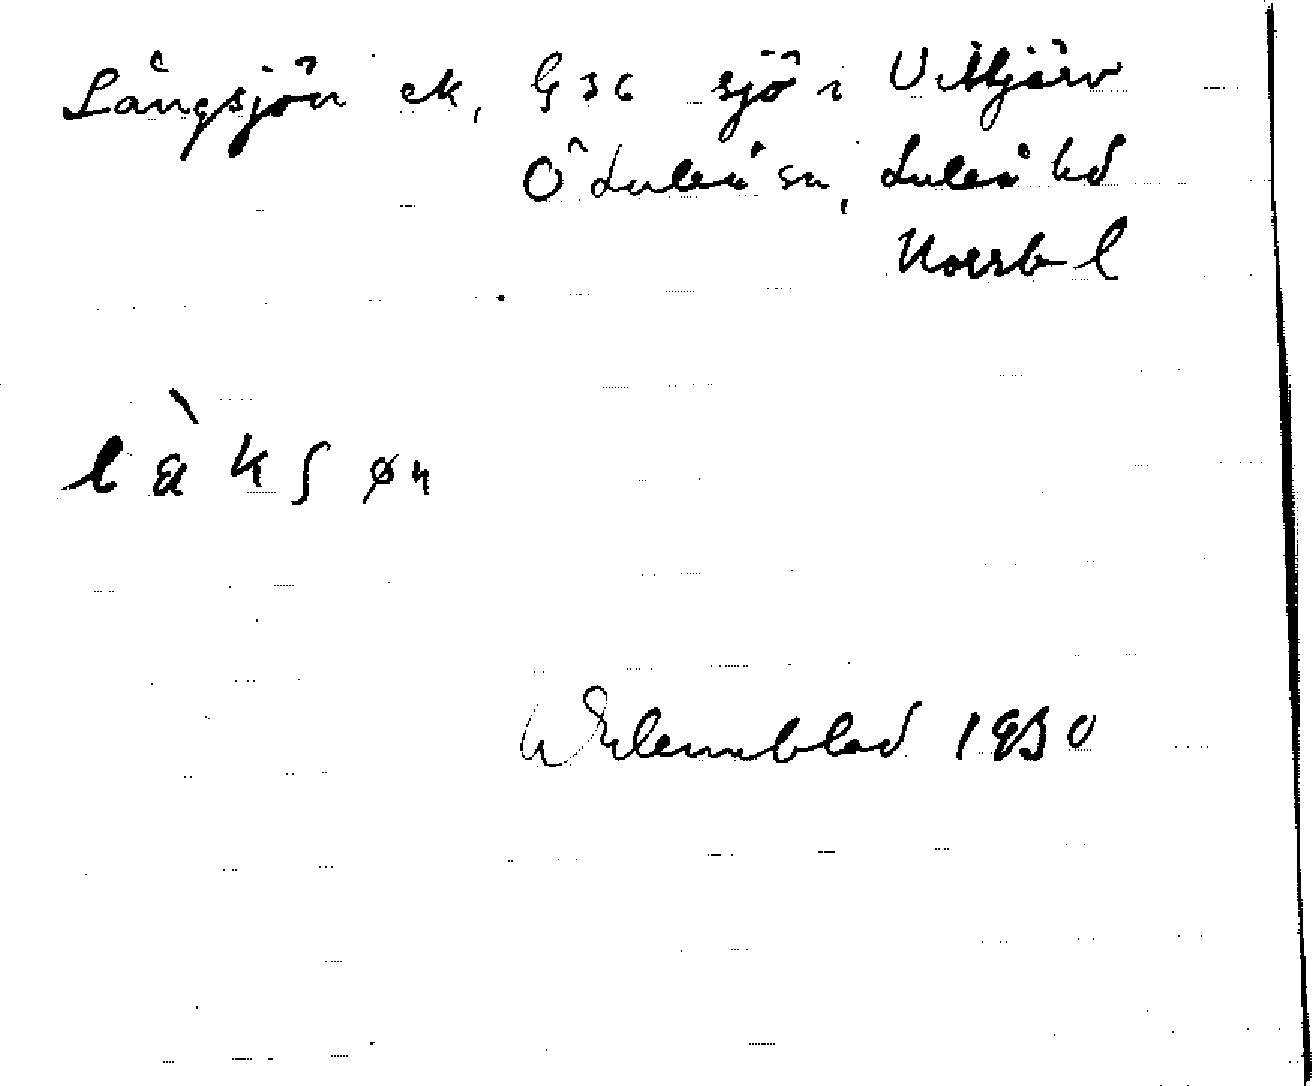 Långsjön ek, G36 sjö i Vittjärv
Ö Luleå sn, Luleå td
Norrb l
l à k ʃ øn
W Elemblad 1930